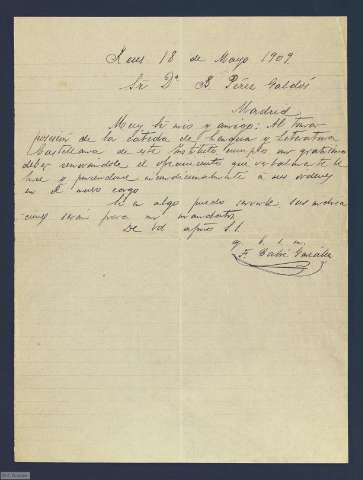 Reus 18 de Mayo 1909
Sr Dn B Pérez Galdós
Madrid
Muy Sr mio y amigo: Al tomar
posesión de la Cátedra de Lengua y Literatura
Castellana de este Instituto cumplo un gratísimo
deber renovandole el ofrecimiento que verbalmente le
hice y poniendome incondicionalmente a sus ordenes
en el nuevo cargo
Si en algo puedo servirle sus indica
ciones serán para mi mandatos
De Vd afmo S.S.
q. b. s. m.